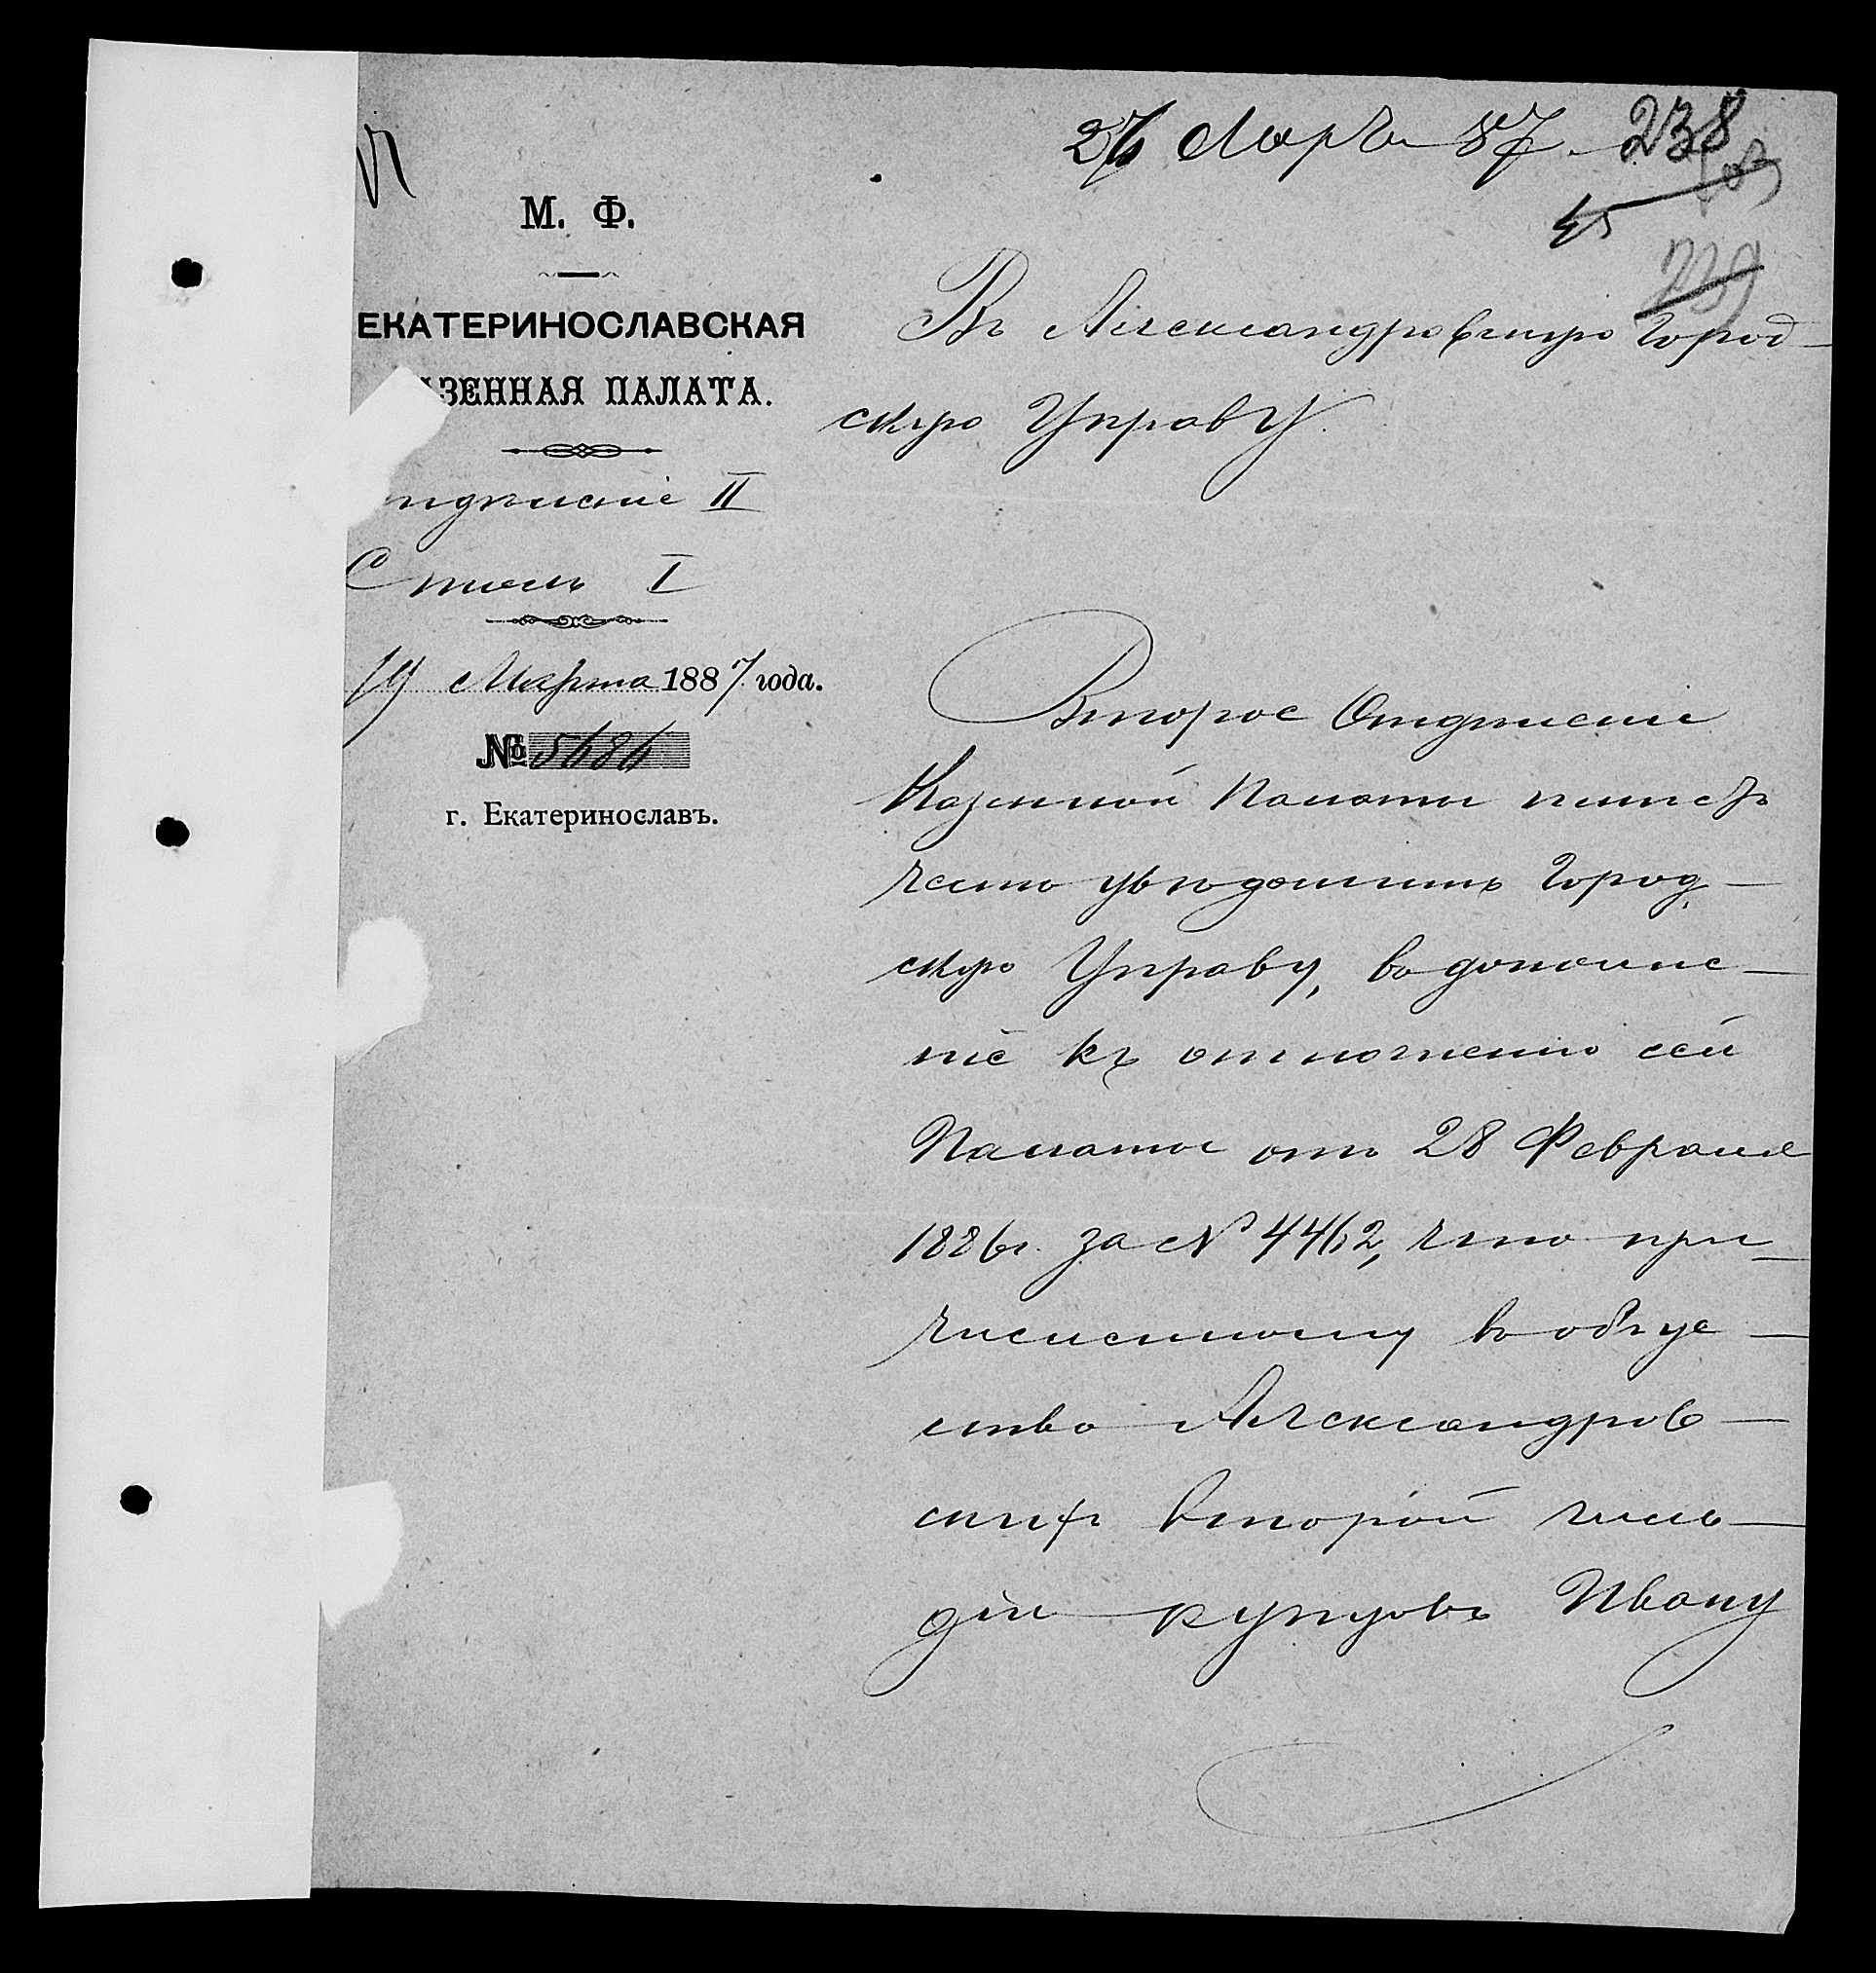 26 Марта 87. 238
45
239
М. Ф.
ЕКАТЕРИНОСЛАВСКАЯ
АЗЕННАЯ ПАЛАТА.
тдѣленіе II
Столъ I
19 Марта 1887 года.
№ 5686
г. Екатеринославъ.
Въ Александровскую Город-
скую Управу.
Второе Отдѣленіе
Казенной Палаты имѣетъ
честь увѣдомить Город-
скую Управу, въ дополне-
ніе къ отношенію сей
Палаты отъ 28 Февраля
1886 г. за № 4462, что при-
численному въ обще-
ство Александров-
скихъ второй гиль-
діи купцовъ Ивану